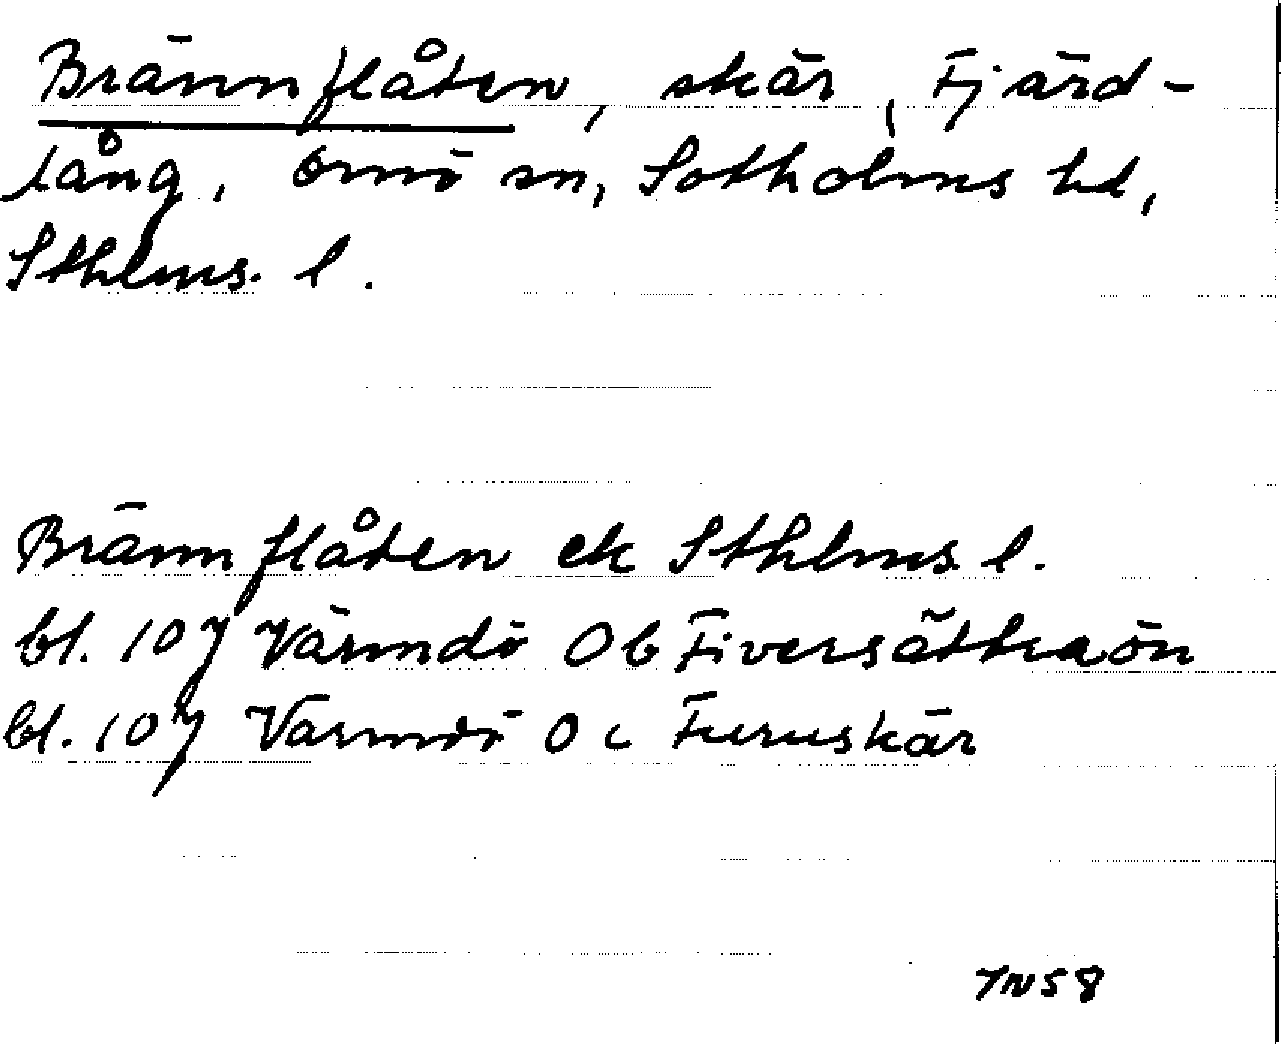 Brännflåten, skär, Fjärd-
lång, Ornö sn, Sotholms hd,
Sthlms. l.
Brännflåten ek Sthlms. l.
bl. 107 Värmdö Ob Fiversättraön
bl. 107 Värmdö Oc Furuskär
7N58